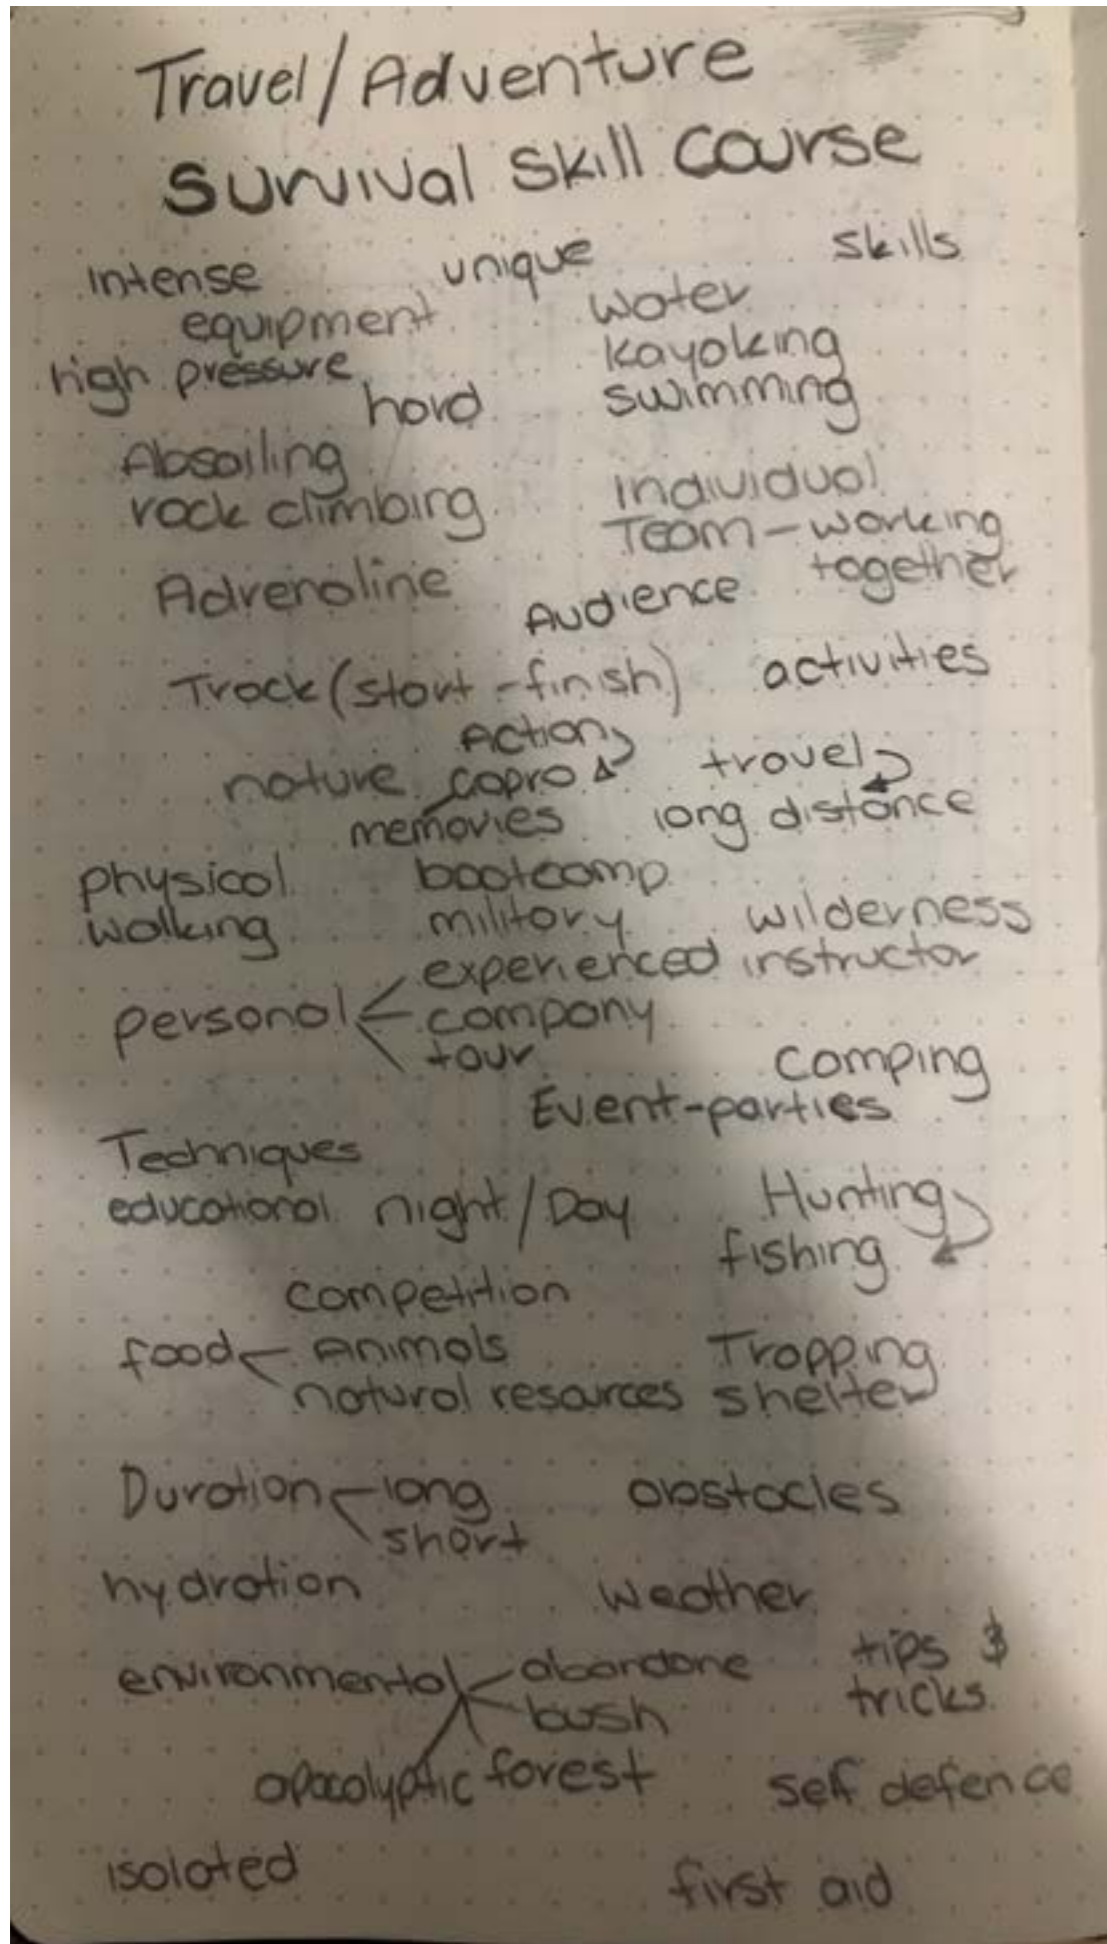 Travel/Adventure
Survival Skill Course
Intense unique skills
equipment water
high pressure kayaking
hard swimming
Absailing
rock climbing Individual
Team-working
together
Adrenaline Audience
Track (start-finish) activities
Action
nature gopro travel
memories long distance
physical bootcamp
walking military wilderness
experienced instructor
personal company
tour camping
Event-parties
Techniques
educational night/Day Hunting
fishing
competition
food Animals Trapping
natural resources shelter
Duration long obstacles
short
hydration weather
environmental abandone tips &
bush tricks
apacolyptic forest self defence
isolated first aid